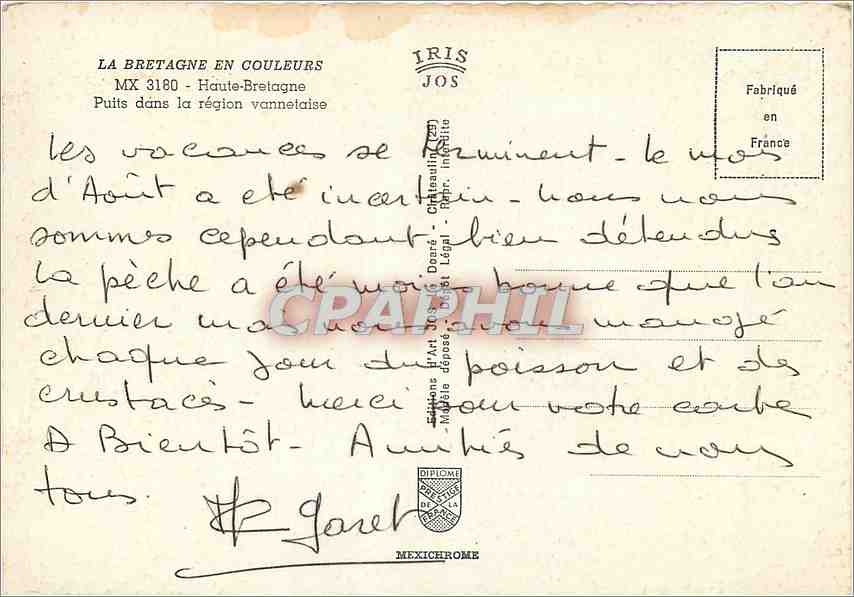 LA BRETAGNE EN COULEURS
MX 3180 - Haute-Bretagne
Puits dans la région vannetaise
IRIS
JOS
Fabriqué
en
France
Les vacances se terminent - le mois
d'Août a été incertain - nous nous
sommes cependant bien détendus
La pêche a été moins bonne que l'an
dernier mais nous avons mangé
chaque jour du poisson et des
crustacés - Merci pour votre carte
A Bientôt - Amitiés de nous
tous.
Garet
Editions d'Art JOS Le Doaré - Châteaulin (29)
Modèle déposé - Dépôt Légal - Repr. interdite
CPAPHIL
DIPLOME
PRESTIGE
DE LA
FRANCE
MEXICHROME